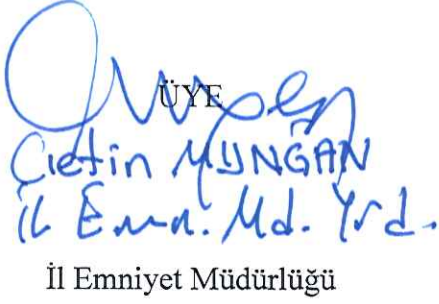 ÜYE
Çetin MUNGAN
İl Emn. Md. Yrd.
İl Emniyet Müdürlüğü